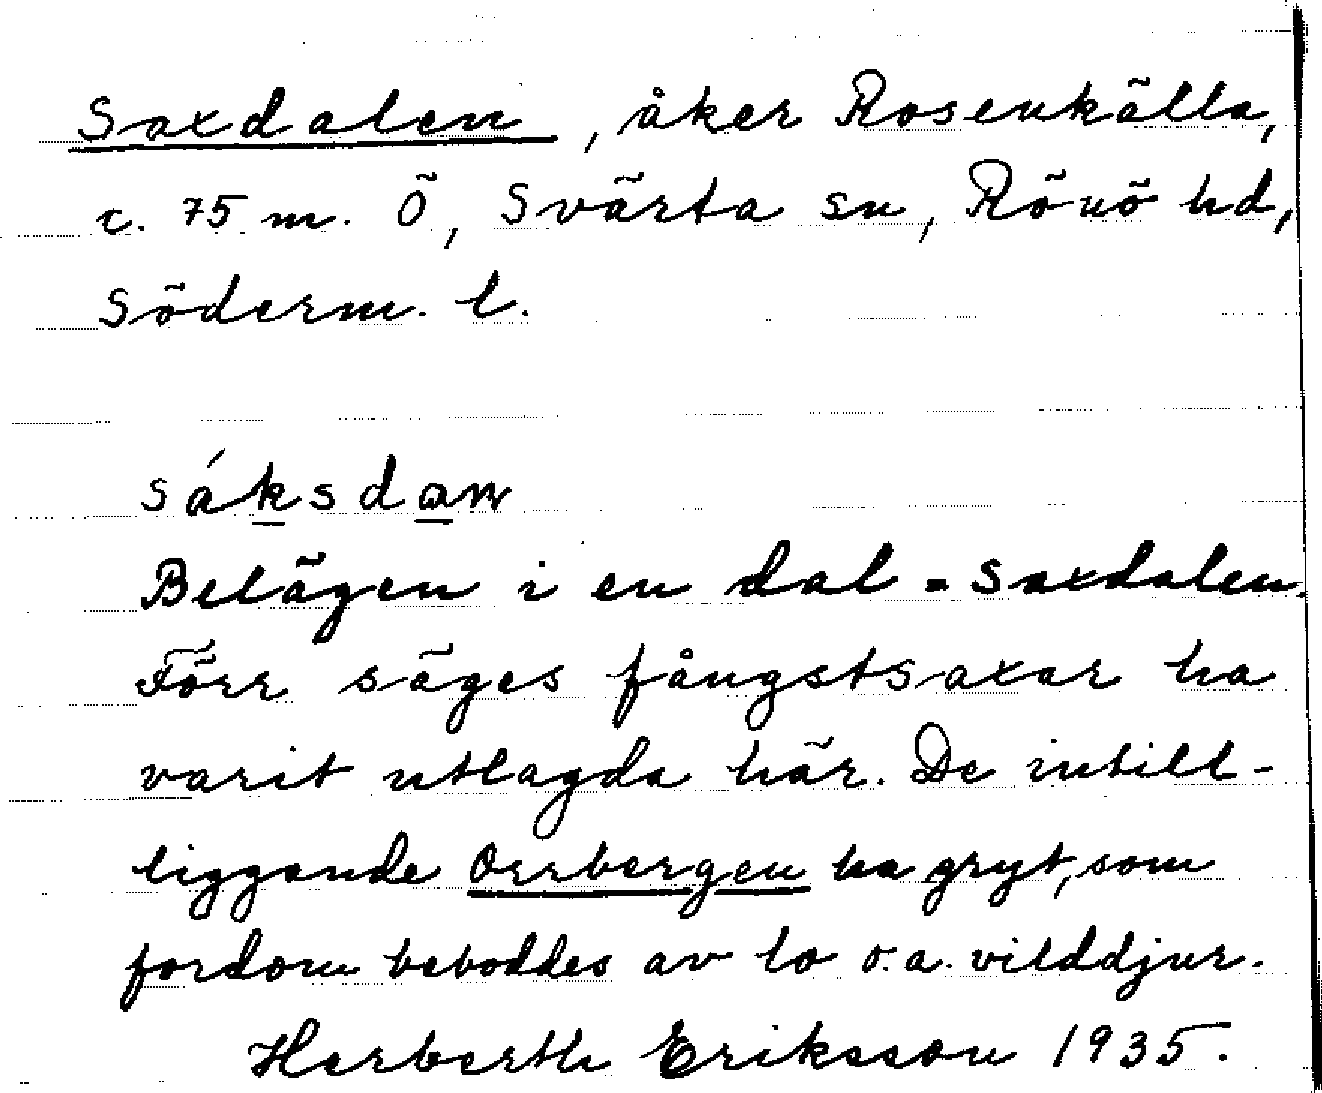 Saxdalen, åker Rosenkälla,
c. 75 m. Ö, Svärta sn, Rönö hd,
Söderm. l.
sáksdaɳ
Belägen i en dal = Saxdalen.
Förr säges fångstsaxar ha
varit utlagda här. De intill-
liggande Orrbergen ha gryt, som
fordom beboddes av lo o.a. vilddjur.
Herberth Eriksson 1935.